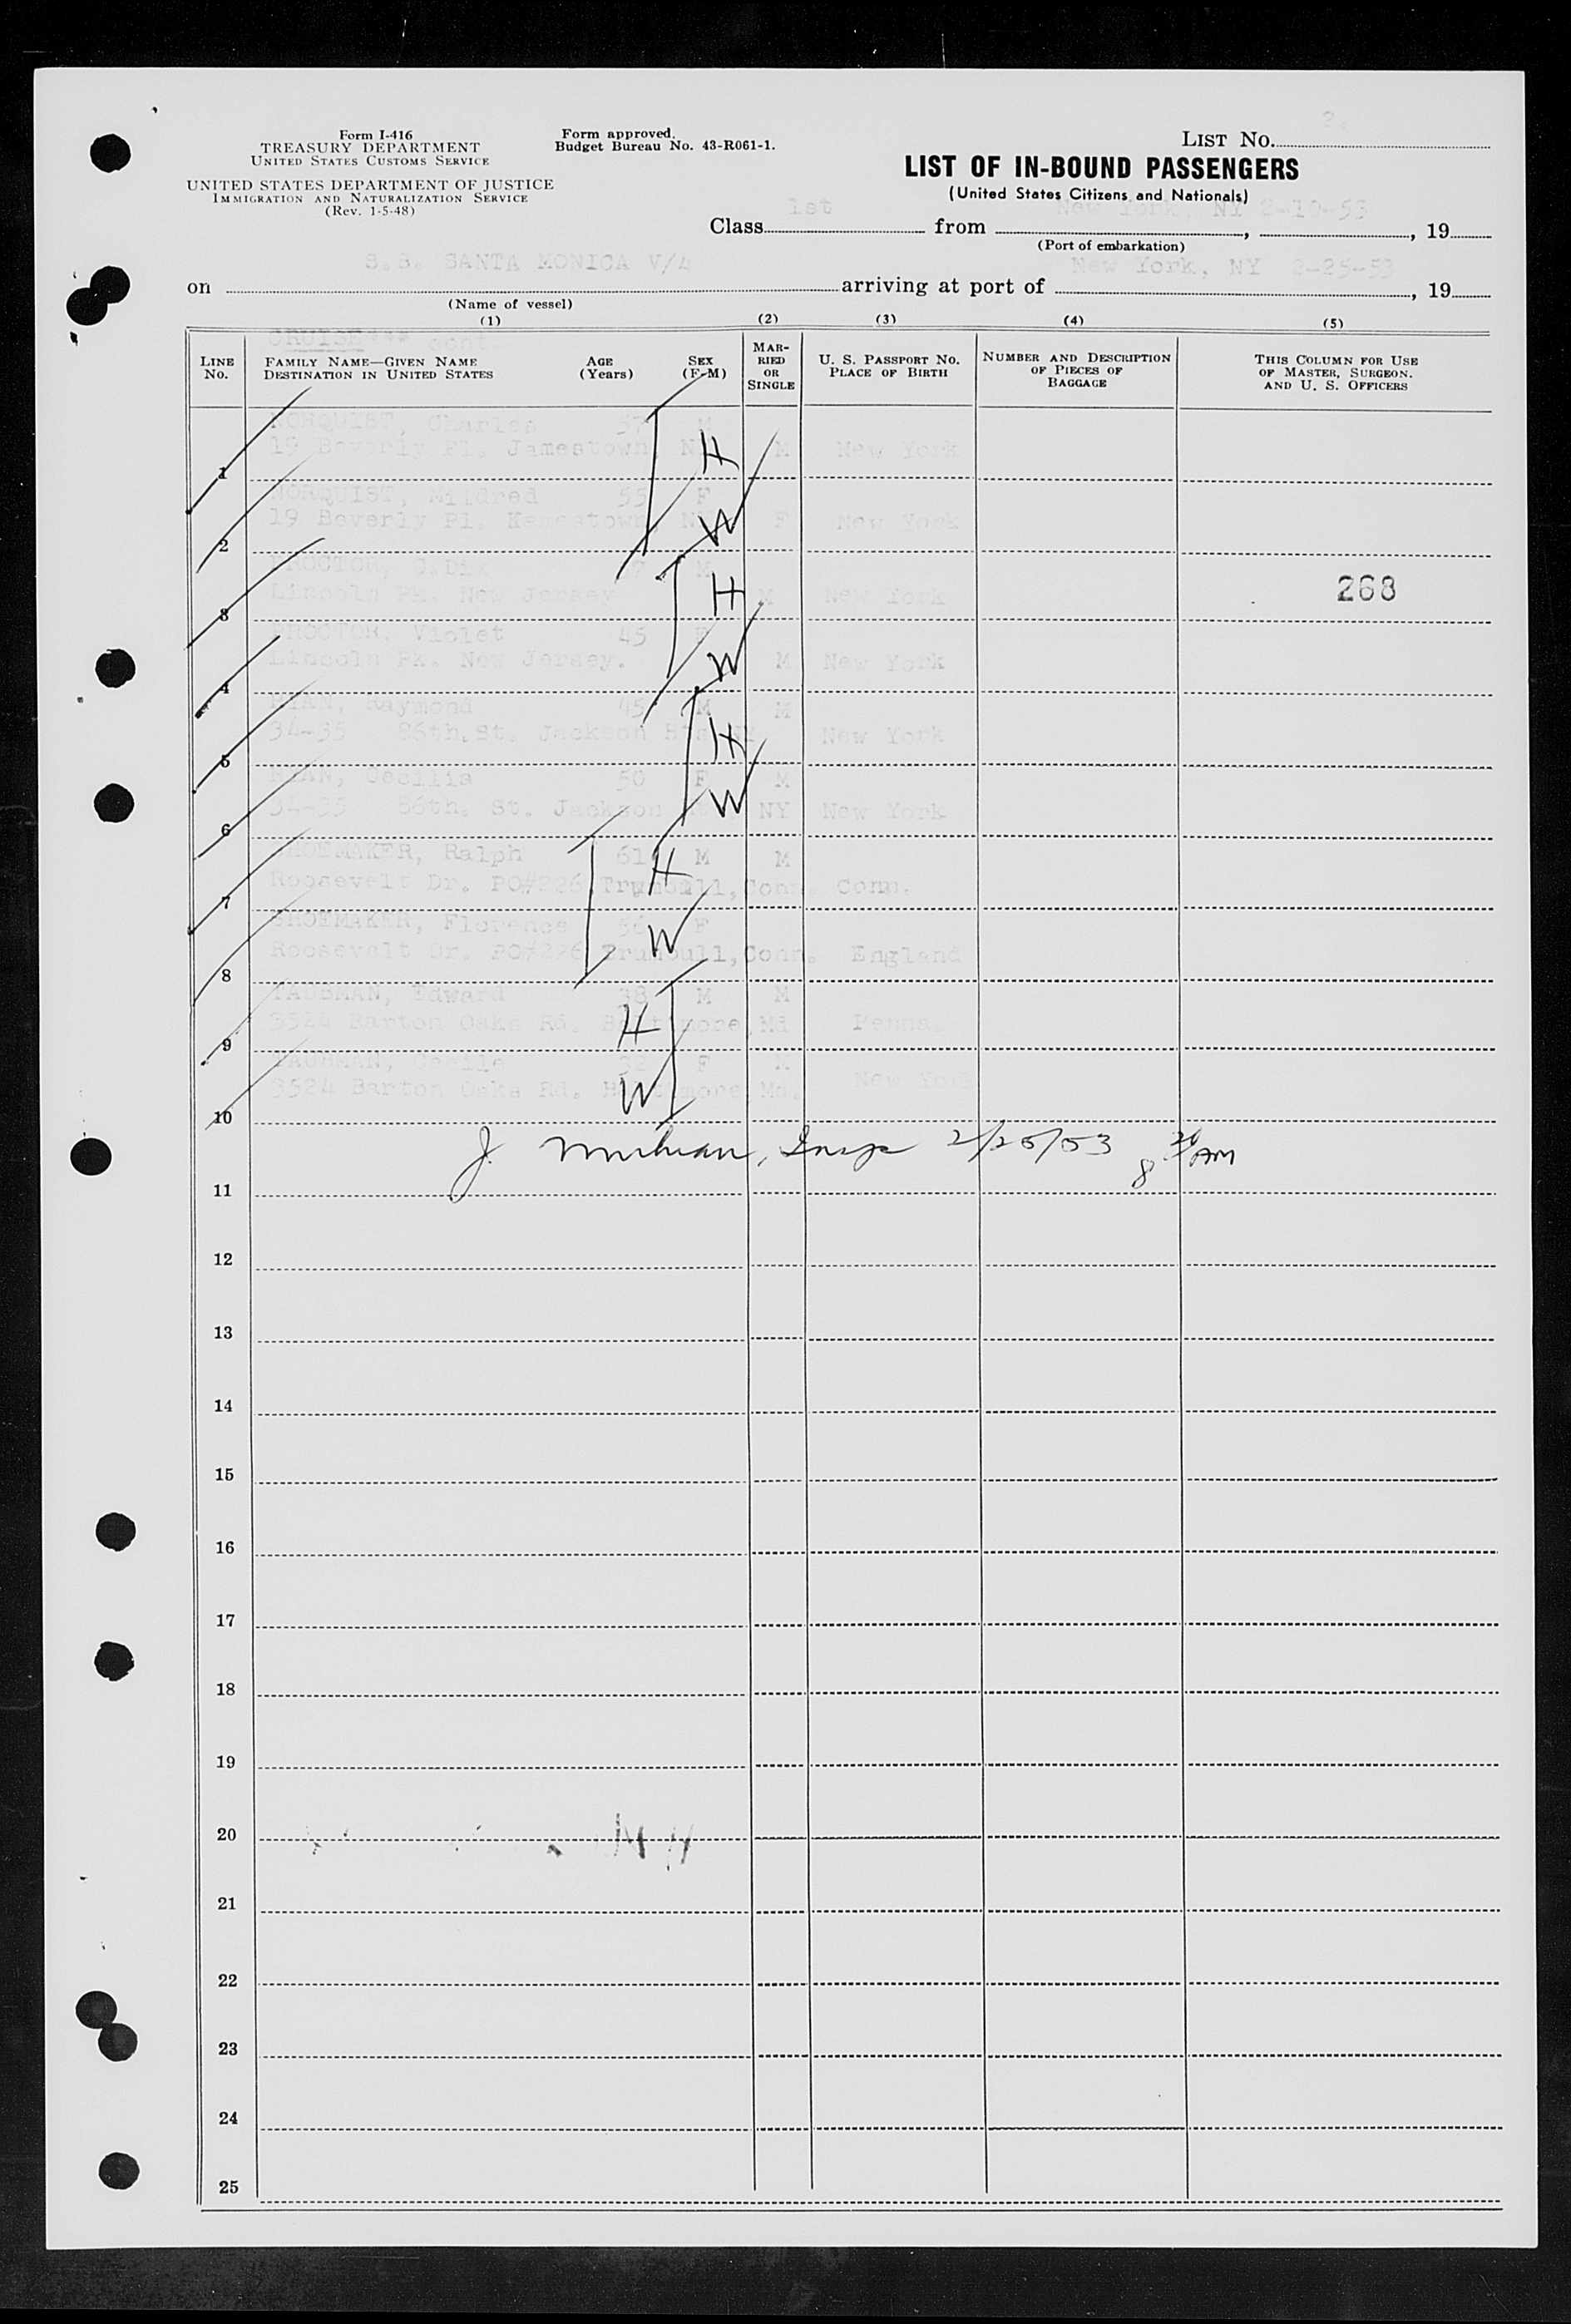 Form I-416
TREASURY DEPARTMENT
UNITED STATES CUSTOMS SERVICE
UNITED STATES DEPARTMENT OF JUSTICE
IMMIGRATION AND NATURALIZATION SERVICE
(Rev. 1-5-48)
Form approved.
Budget Bureau No. 43-R061-1.
LIST NO.
LIST OF IN-BOUND PASSENGERS
(United States Citizens and Nationals)
Class 1st from New York, NY 2-10-53, 19
(Port of embarkation)
on S.S. SANTA MONICA V/4 arriving at port of New York, NY 2-25-53, 19
(Name of vessel)
(1) (2) (3) (4) (5)
CRUISE*** cont.
LINE NO.
FAMILY NAME—GIVEN NAME
DESTINATION IN UNITED STATES
AGE (Years)
SEX (F-M)
MARRIED OR SINGLE
U. S. PASSPORT NO.
PLACE OF BIRTH
NUMBER AND DESCRIPTION OF PIECES OF BAGGAGE
THIS COLUMN FOR USE OF MASTER, SURGEON, AND U. S. OFFICERS
NORQUIST, Charles 57 M
1 19 Beverly Pl. Jamestown, N H M New York
NORQUIST, Mildred 55 F
2 19 Beverly Pl. N W F New York
PROCTOR, M
3 Lincoln Pk. New Jersey H M New York 268
PROCTOR, Violet 45 F
4 Lincoln Pk. New Jersey. W M New York
RYAN, Raymond 45 M M
5 34-35 86th. St. Jackson Hts NY H New York
RYAN, Cecilia 50 F M
6 34-35 86th. St. Jackson NY W New York
SHOEMAKER, Ralph 61 M M
7 Roosevelt Dr. PO#226 Trumbull, Conn. H Conn.
SHOEMAKER, Florence 56 F
8 Roosevelt Dr. PO#226 Trumbull, Conn. W England
TAUBMAN, Edward 38 M M
9 3524 Barton Oaks Rd. Baltimore, Md H Penna.
TAUBMAN, Cecile F M
10 3524 Barton Oaks Rd. Md. W New York
J. Insp 2/25/53 8 AM
11
12
13
14
15
16
17
18
19
20
21
22
23
24
25